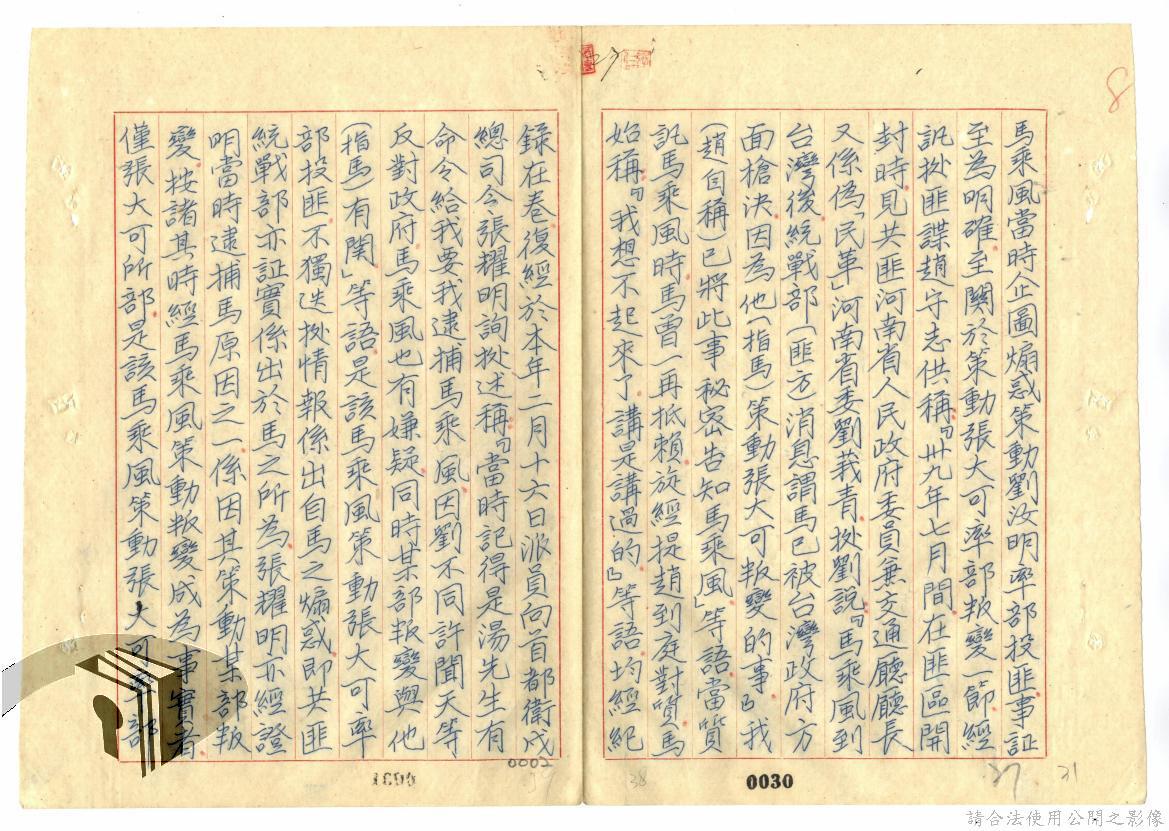 馬乘風當時企圖煽惑策動劉汝明率部投匪事証
至為明確至關於策動張大可率部叛變一節經
訊㨿匪諜趙守志供稱「卅九年七月間在匪區開
封時見共匪河南省人民政府委員兼交通廳廳長
又係偽「民革」河南省委劉莪青㨿劉說『馬乘風到
台灣後統戰部(匪方)消息謂馬已被台灣政府方
面槍決因為他(指馬)策動張大可叛變的事』我
(趙自稱)已將此事秘密告知馬乘風」等語當質
訊馬乘風時馬曾一再抵賴旋經提趙到庭對質馬
始稱『我想不起來了講是講過的』等語均經紀
錄在卷復經於本年二月十六日派員向首都衛戍
總司令張耀明詢㨿述稱『當時記得是湯先生有
命令給我要我逮捕馬乘風因劉不同許聞天等
反對政府馬乘風也有嫌疑同時某部叛變與他
(指馬)有関」等語是該馬乘風策動張大可率
部投匪不獨迭㨿情報係出自馬之煽惑即共匪
統戰部亦証實係出於馬之所為張耀明亦經證
明當時逮捕馬原因之一係因其策動某部叛
變按諸其時經馬乘風策動叛變成為事實者
僅張大可所部是該馬乘風策動張大可率部
0030
0031
0002
37
31
38
8
請合法使用公開之影像